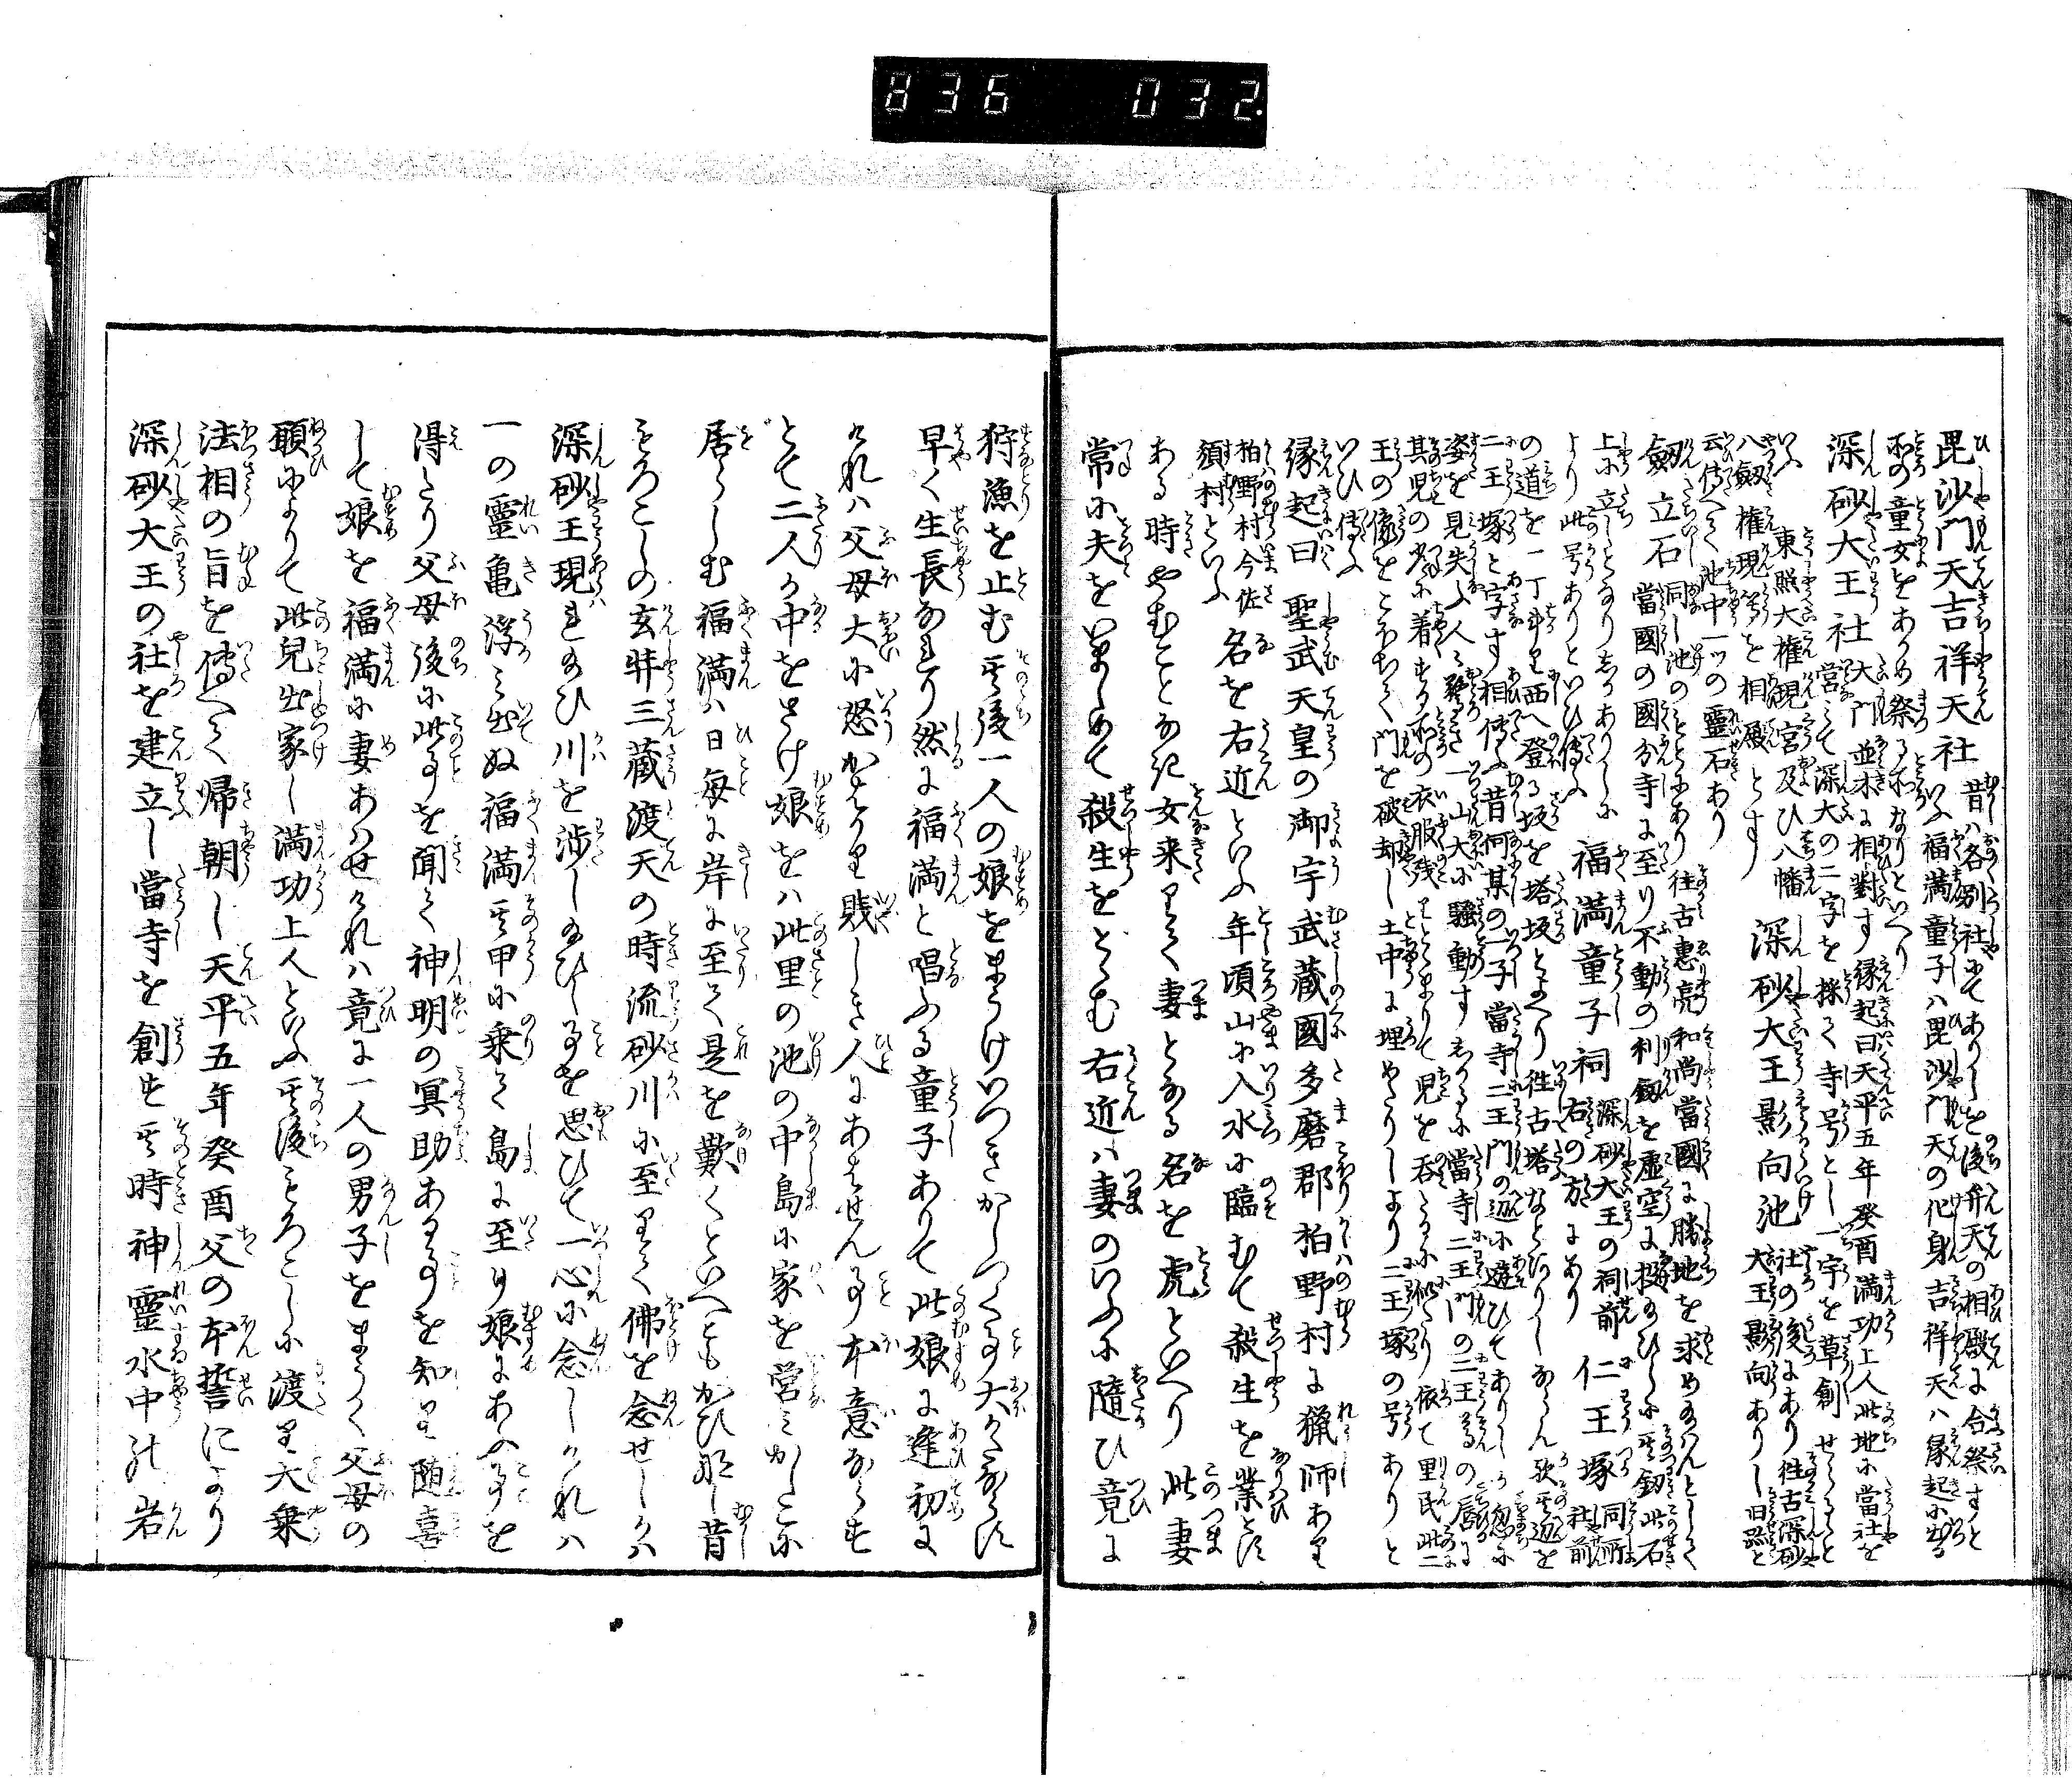 836 032
毘沙門天吉祥天社 昔ハ各別社にてありしを後弁天の相殿に合祭すと
いふ福満童子ハ毘沙門天の化身吉祥天ハ縁起に出る
所の童女をあかめ祭る所なりといへり
深砂大王社 大門並木に相對す縁起曰天平五年癸酉満功上人此地に當社を
営みて深大の二字を採て寺号とし一宇を草創せらると
いふ 東照大権現宮及ひ八幡
八劔権現等を相殿とす 深砂大王影向池 社の後にあり往古深砂
大王影向ありし旧跡と
云傳へて池中一ツの靈石あり
劔立石 同し池のもとにあり往古恵亮和尚當國に勝地を求め給はんとして
當國の國分寺に至り不動の利劔を虚空に投給ひしに其劔此石
上に立しとなりしかありしに
より此号ありといひ傳ふ 福満童子祠 深砂大王の祠前
右の方にあり 仁王塚 同所
社前
の道を一丁斗り西へ登る坂を塔坂とよへり往古塔なとありしならん歟其辺を
二王塚と字す相傳ふ昔何某の一子當寺二王門の辺に遊ひてありしか忽に
姿を見失ふ人々驚き一山大に騒動すしかるに當寺二王門の二王尊の唇に
其児の常に着する所の衣服残りとゝまりて児を呑たるに似たり依て里民此二
王の像をこほちて門を破却し土中に埋めたりしより二王塚の号ありと
いひ傳ふ
縁起曰 聖武天皇の御宇武蔵國多磨郡柏野村に猟師あり
柏野村今佐
須村といふ 名を右近といふ年頃山に入水に臨むて殺生を業とす
ある時やむことなき女来りて妻となる名を虎といへり 此妻
常に夫をいましめて殺生をとゝむ右近ハ妻のいふに隨ひ竟に
狩漁を止む其後一人の娘をまうけいつきかしつく事大かたならす
早く生長なれり然に福満と唱ふる童子ありて此娘に逢初に
けれハ父母大に怒かゝり賎しき人にあはせん事本意ならす
とて二人か中をさけ娘をハ此里の池の中島に家を営みかしこに
居らしむ福満ハ日毎に岸に至て是を歎くといへともかひ那し昔
もろこしの玄弉三藏渡天の時流砂川に至りて佛を念せしかハ
深砂王現れ給ひ川を渉し給ひし事を思ひて一心に念しけれハ
一の靈亀浮み出ぬ福満其甲に乗て島に至り娘にあふ事を
得たり父母後に此事を聞て神明の冥助ある事を知り随喜
して娘を福満に妻あハせけれハ竟に一人の男子をまうく父母の
願によりて此兒出家し満功上人といふ其後もろこしに渡り大乗
法相の旨を傳へて帰朝し天平五年癸酉父の本誓により
深砂大王の社を建立し當寺を創む其時神靈水中の岩